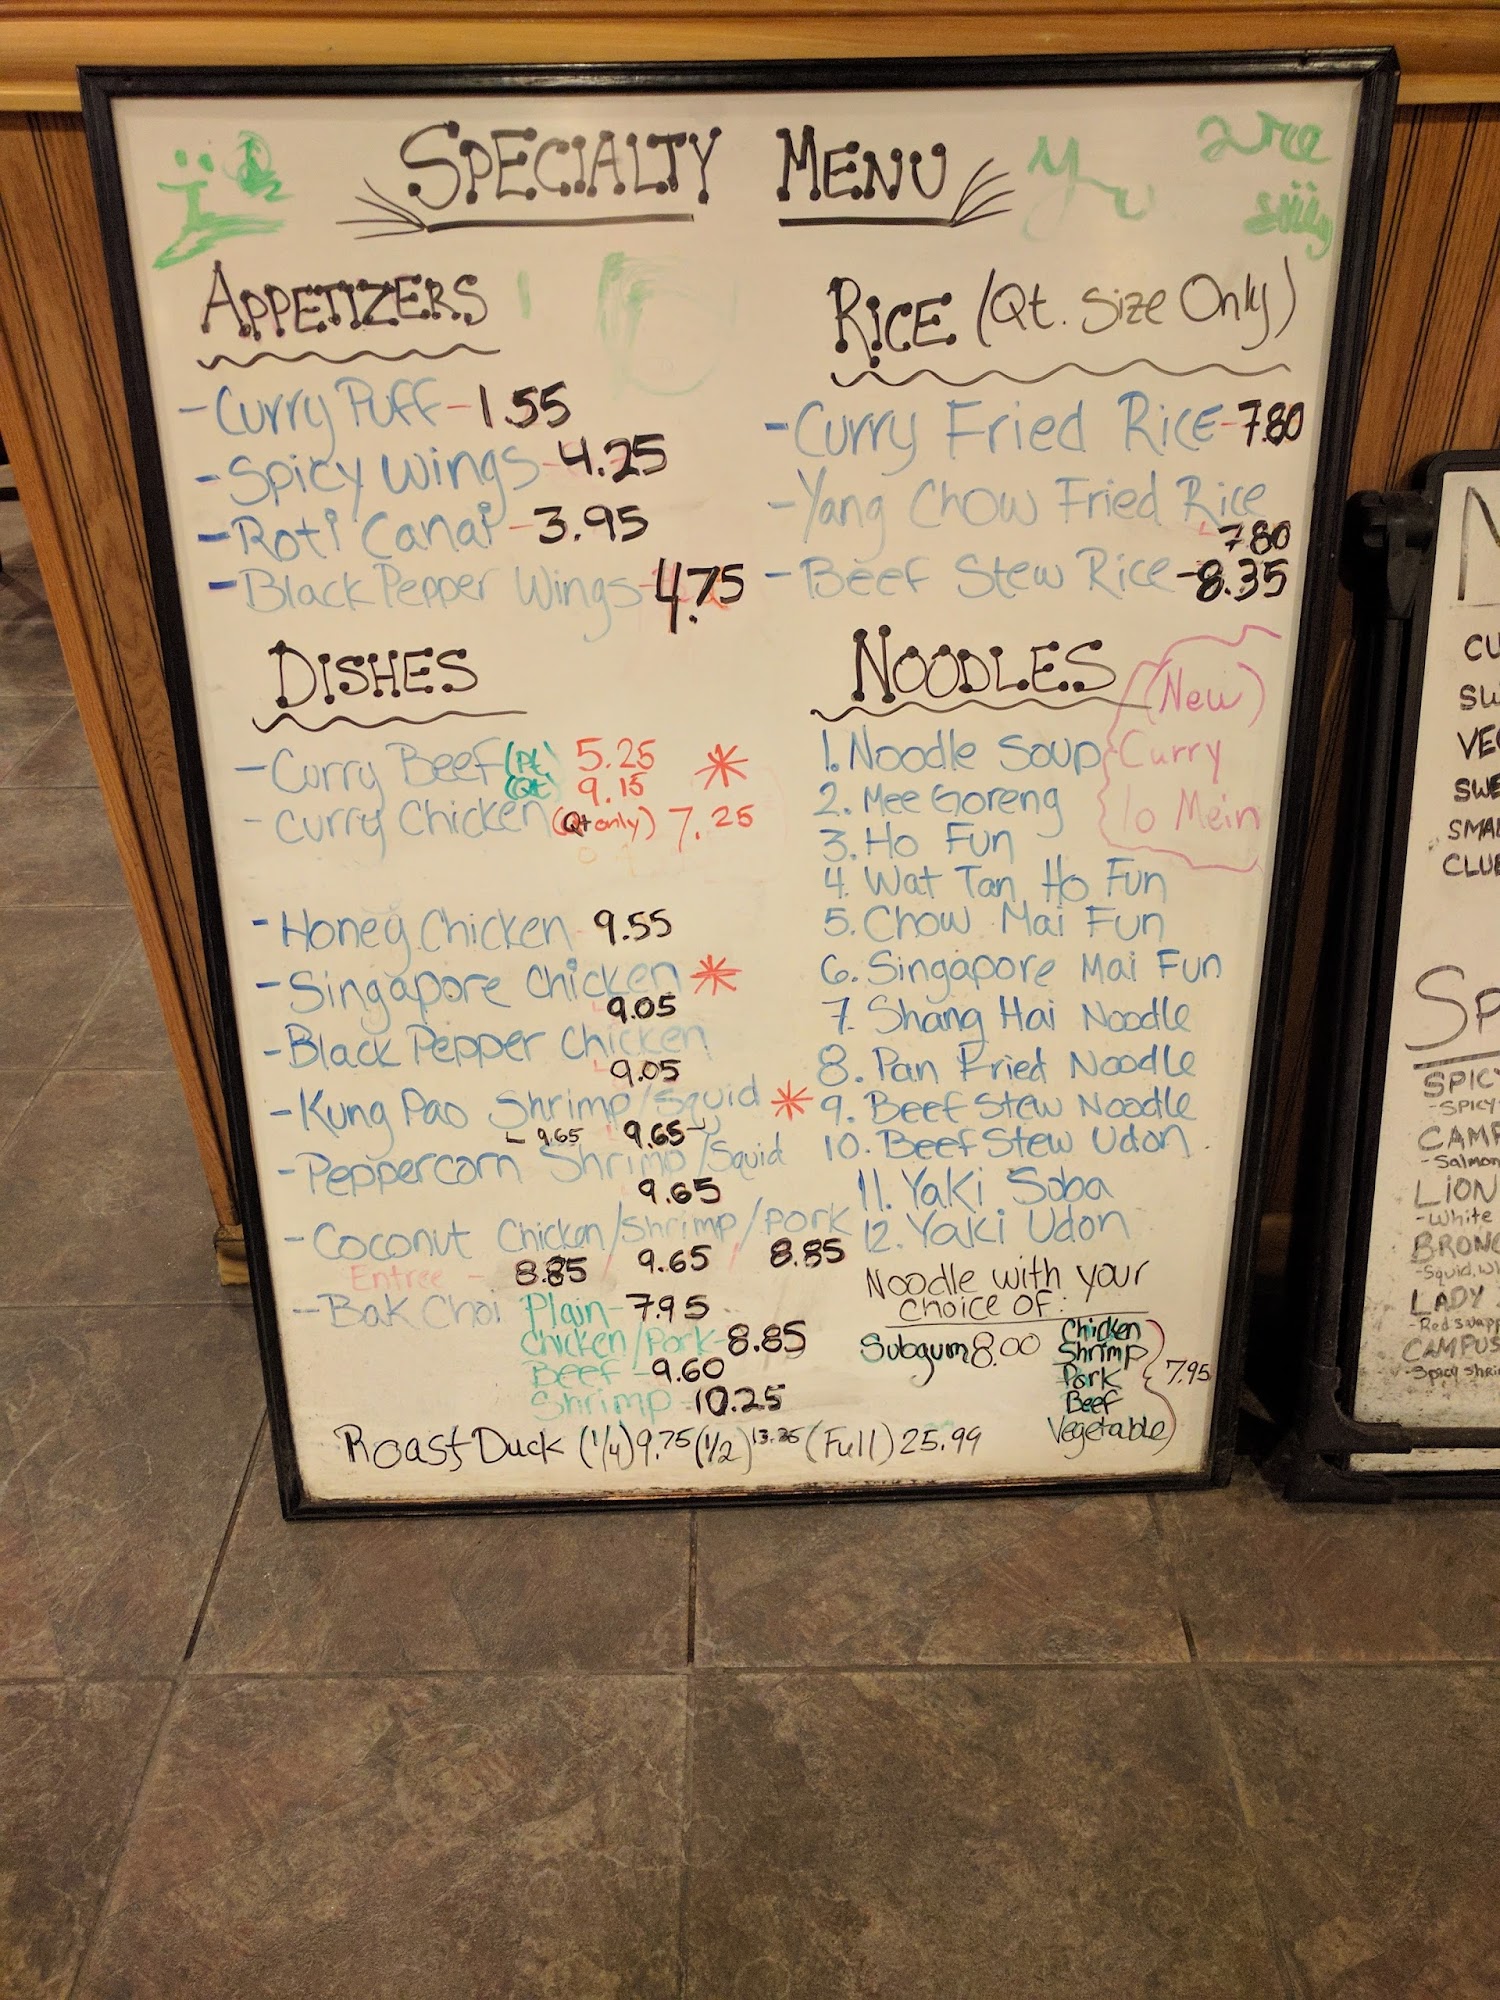 SPECIALTY MENU
APPETIZERS
- Curry Puff - 1.55
- Spicy Wings - 4.25
- Roti Canai - 3.95
- Black Pepper Wings - 4.75
RICE (Qt. Size Only)
- Curry Fried Rice - 7.80
- Yang Chow Fried Rice
7.80
- Beef Stew Rice - 8.35
DISHES
- Curry Beef (Pt.) 5.25 *
(Qt.) 9.15
- Curry Chicken (Qt only) 7.25
- Honey Chicken 9.55
- Singapore Chicken *
9.05
- Black Pepper Chicken
9.05
- Kung Pao Shrimp/Squid *
9.65 9.65
- Peppercorn Shrimp/Squid
9.65
- Coconut Chicken/Shrimp/Pork
Entree - 8.85 / 9.65 / 8.85
- Bak Choi Plain - 7.95
Chicken/Pork - 8.85
Beef - 9.60
Shrimp - 10.25
Roast Duck (1/4) 9.75 (1/2) 13.25 (Full) 25.99
NOODLES
(New)
Curry
lo Mein
1. Noodle Soup
2. Mee Goreng
3. Ho Fun
4. Wat Tan Ho Fun
5. Chow Mai Fun
6. Singapore Mai Fun
7. Shang Hai Noodle
8. Pan Fried Noodle
9. Beef Stew Noodle
10. Beef Stew Udon
11. Yaki Soba
12. Yaki Udon
Noodle with your
choice of:
Subgum 8.00
Chicken
Shrimp
Pork 7.95
Beef
Vegetable
SPICY
CAMP
-Salmon
LION
-White
BRONC
LADY
CAMPUS